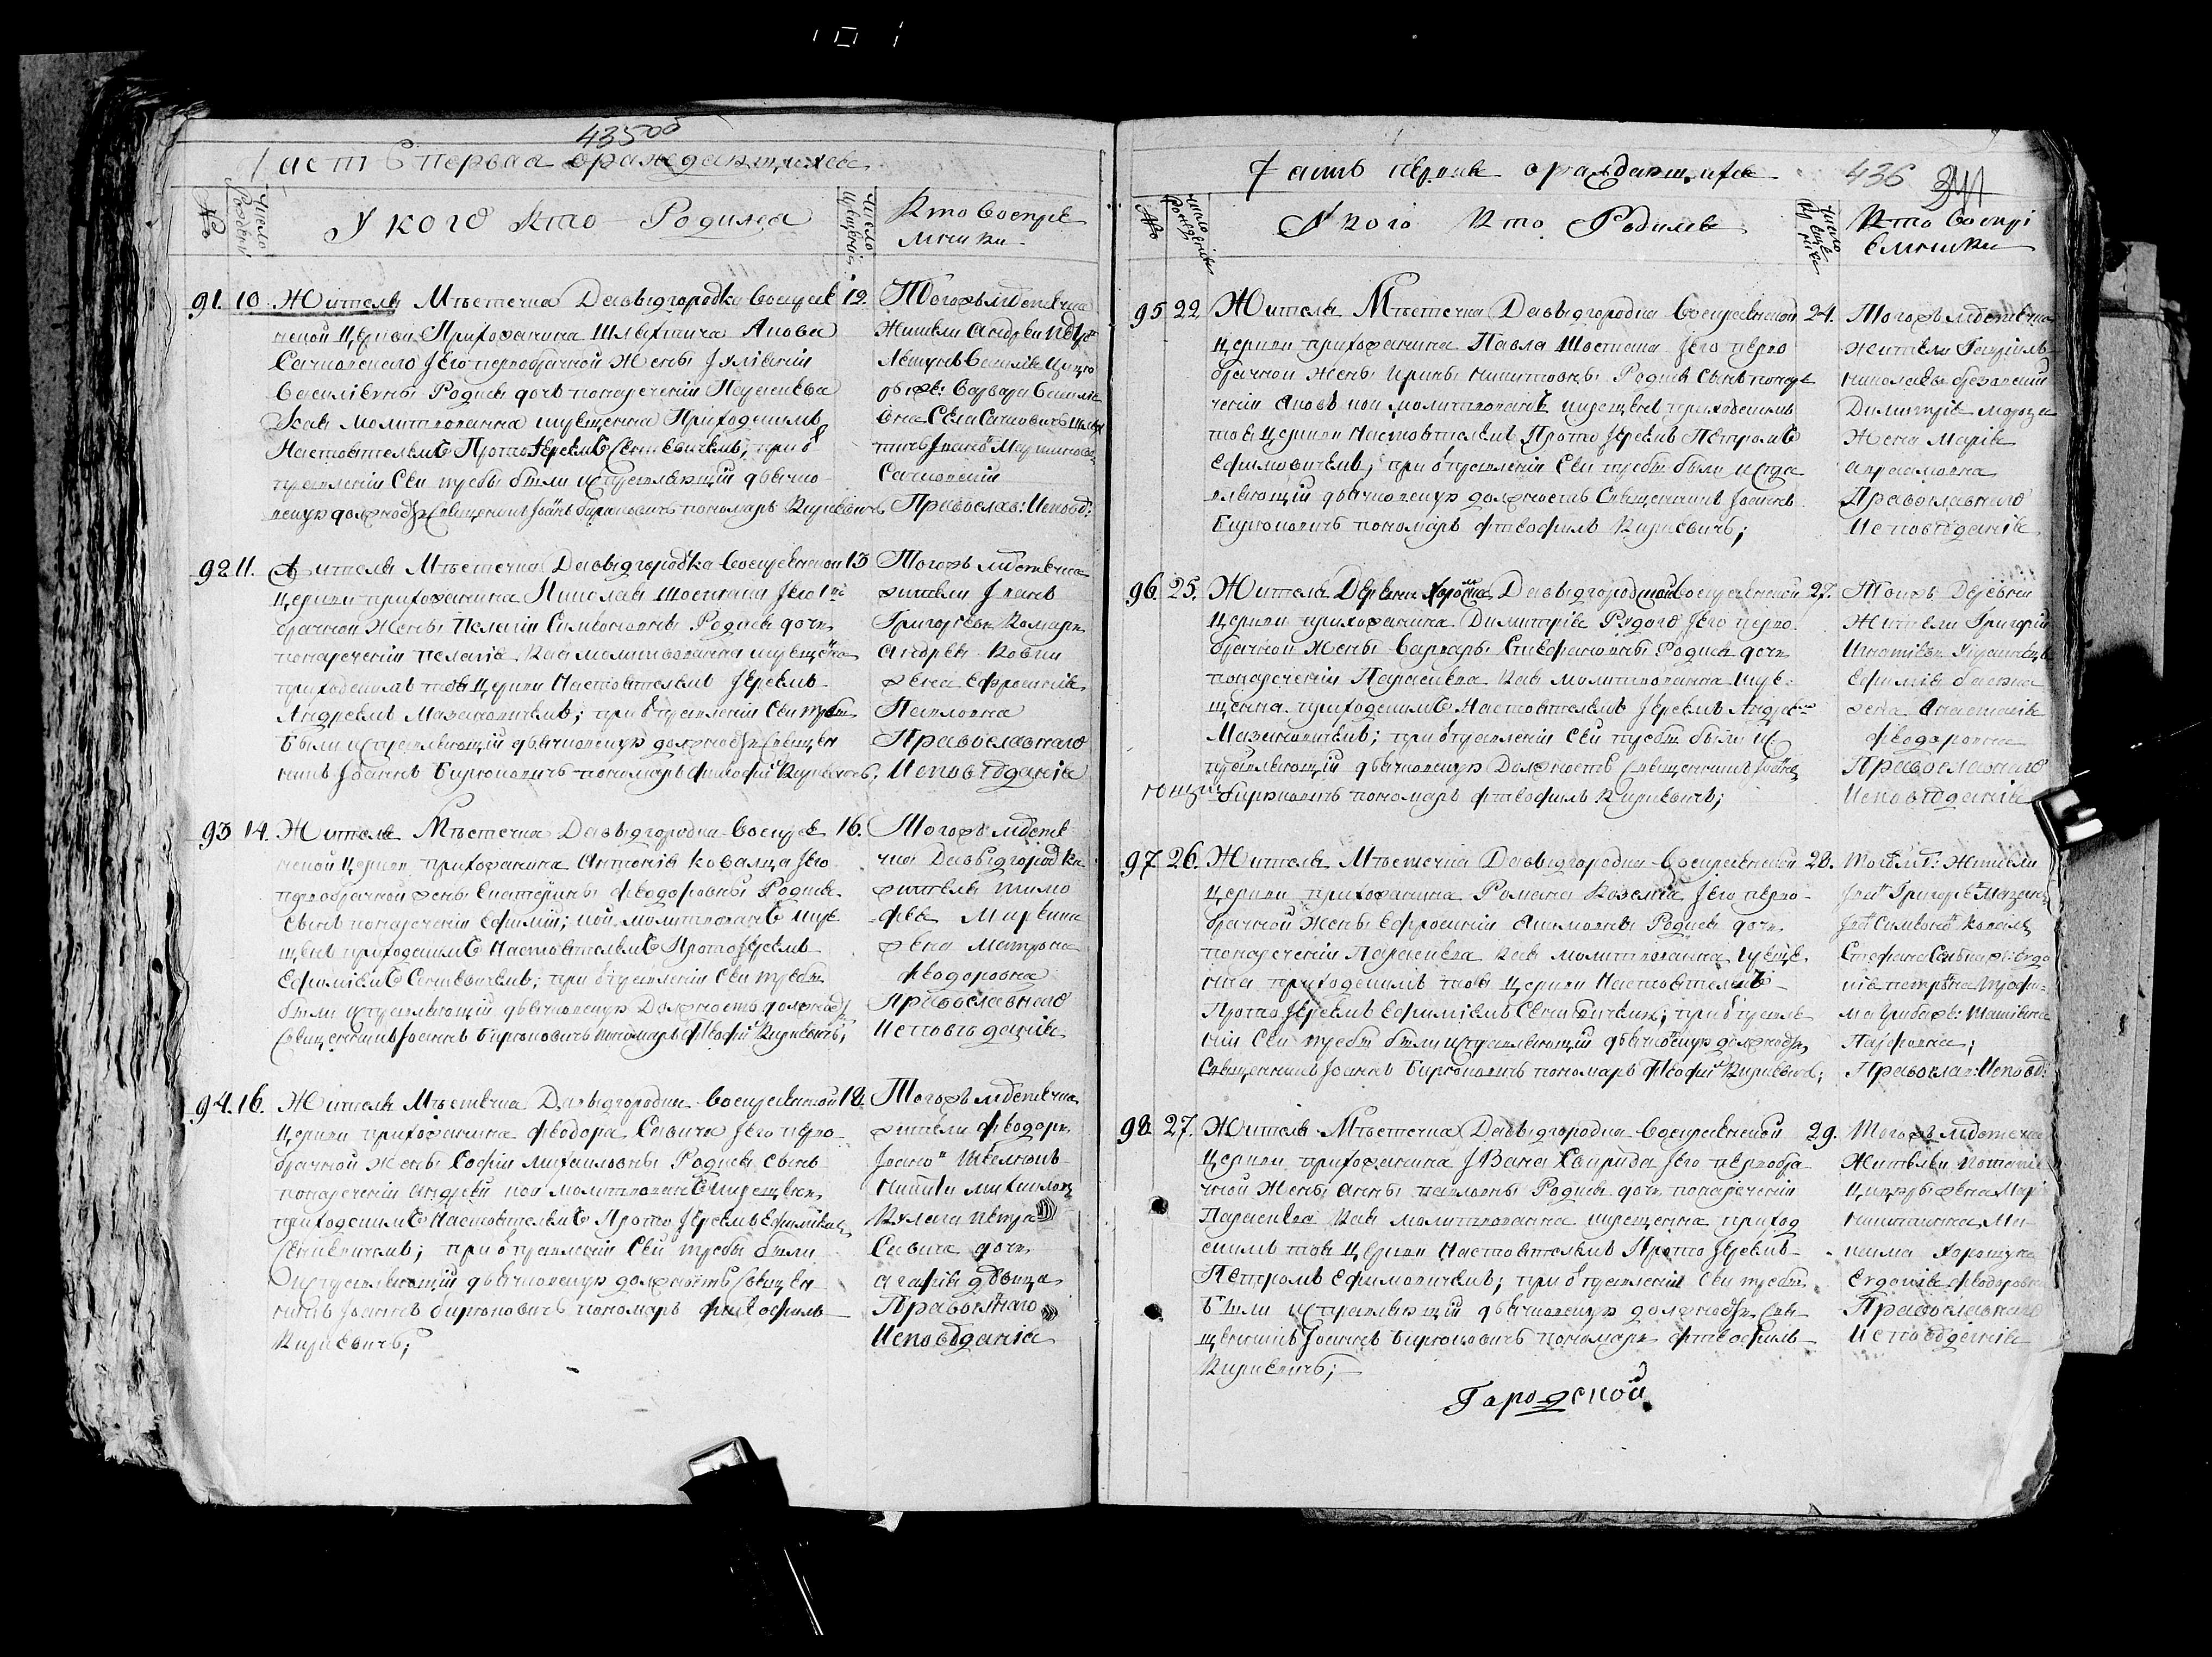 435об
Часть первая ораждающихся
№
Число Рождені
У кого кто Родился
Число крещенія
Кто Воспріе
мники
91. 10. Житель Мѣстечка Давыдгородка Воскресе 12.
нской Церкви Прихожанина Шляхтича Якова
Сачковского Его первобрачной Жены Іуліянїи
Василіевны Родися дочь нонаречении Параскева
Коя молитвованна икрещенна Приходскимъ
Настоятелемъ Протоіереемъ Сенкевичемъ; при о
тправленіи Сеи требы были исправляющій дьячко
вскую должность Священникъ Іоаннъ Бирюковичъ пономарь Кириевичъ
Тогожъ мѣстечка
Жители Андреи Петро
Василіи
жена: Варвара Василіе
вна Села
Іванъ Мартинова
Сачковскій
Православ: Исповѣд:
92 11. Житель Мѣстечка Давыдгородка Воскресенской 13
Церкви прихожанина Николая Шостака Его 1во
брачной Жены Пелагіи Симеоновны Родися дочь
нонаречении Пелагія Коя молитвованна икрещена
приходскимъ тояжъ Церкви Настоятелемъ Іереемъ
Андреемъ Мазановичемъ; при отправленіи Сеи требы
Были исправляющій дьячковскую должность Священ
никъ Іоаннъ Бирюковичъ пономарь Феофилъ Кириевичъ;
Тогожъ мѣстечка
жители Іванъ
Григоріевъ Комаръ
Андрея Ковша
жена Ефросинія
Павловна
Православного
Исповѣданія
93 14. Житель Мѣстечка Давыдгородка Воскресе 16.
нской Церкви прихожанина Антонія Ковалца Его
первобрачной жены Екатерины Феодоровны Родися
Сынъ нонаречении Ефимій; кой молитвованъ икре
щенъ приходскимъ Настоятелемъ Протоіереемъ
Ефиміемъ Сенкевичемъ; при отправленіи Сеи требы
были исправляющій дьячковскую Должность должность
Священникъ Іоаннъ Бирюковичъ пономарь Феофилъ Кириевичъ;
Тогожъ мѣсте
чка Давыдгородка
житель Тимо
фей Маркина
жена Матрона
Феодоровна
Православного
Исповѣданія
94. 16. Житель Мѣстечка Давыдгородка Воскресенской 18.
Церкви прихожанина Феодора Савича Его перво
брачной Жены Софіи Михаиловны Родися Сынъ
нонаречении Андрей кои молитвованъ икрещенъ
приходскимъ Настоятелемъ Протоіереемъ Ефиміемъ
Сенкевичемъ; при отправленіи Сеи требы были
исправляющій дьячковскую должность Священ
никъ Іоаннъ Бирюковичъ пономарь Феофилъ
Кириевичъ;
Тогожъ мѣстечка
жители Феодоръ
Никита Михаиловъ
Кулага Петра
Савича дочь
Агафія дѣвица
Православного
Исповѣданія
Часть первая ораждающихся
436
341
№
Число рожденія
У кого Кто Родился
Число Крещенія
Кто Воспрі
емники
95 22 Житель Мѣстечка Давыдгородка Воскресенской 24.
Церкви прихожанина Павла Шостака Его перво
брачной Жены Ирины Никитовны Родися Сынъ нонаре
чении Яковъ кои молитвованъ икрещенъ приходскимъ
тояжъ Церкви Настоятелемъ Протоіереемъ Петромъ
Ефимовичемъ; при отправленіи Сеи требы были испра
вляющій дьячковскую должность Священникъ Іоаннъ
Бирюковичъ пономарь Феофилъ Кириевичъ;
Тогожъ мѣстечка
жители Гавріилъ
Николаевъ
Димитрія Мороза
Жена Марія
Аврамовна
Православного
Исповѣданія
96. 25. Житель Деревни Хоромска Давыдгородской Воскресенской 27.
Церкви прихожанина Димитрія Рудого Его перво
брачной Жены Варвары Стефановны Родися дочь
нонаречении Параскева Коя молитвованна икре
щенна приходскимъ Настоятелемъ Іереемъ Андреемъ
Мазановичемъ; при отправленіи Сеи требы были ис
правляющій дьячковскую Должность Священникъ Іоаннъ
ющій Бирюковичъ пономарь Феофилъ Кириевичъ;
Тоижъ Деревни
Жители Григорій
Игнатіевъ
Ефимія
жена Анастасія
Феодоровна
Православного
Исповѣданія
97 26. Житель Мѣстечка Давыдгородка Воскресенской 28.
Церкви прихожанина Романа Козелка Его перво
брачной Жены Ефросиніи Якимовны Родися дочь
нонаречении Параскева Коя молитвованна икреще
нна приходскимъ тояжъ Церкви Настоятелемъ
Протоіереемъ Ефиміемъ Сенкевичемъ; при отправле
ніи Сеи требы были исправляющій дьячковскую должность
Священникъ Іоаннъ Бирюковичъ пономарь Феофилъ Кириевичъ;
Жители
Григоріевъ
Стефана
Петровна Трофи
ма
Православ: Исповѣд:
98. 27. Житель Мѣстечка Давыдгородка Воскресенской 29.
Церкви прихожанина Івана Свирида Его первобра
чной Жены Анны Павловны Родися дочь нонаречении
Параскева Коя молитвованна икрещенна приход
скимъ тояжъ Церкви Настоятелемъ Протоіереемъ
Петромъ Ефимовичемъ; при отправленіи Сеи требы
Были исправляющій дьячковскую должность Свя
щенникъ Іоаннъ Бирюковичъ пономарь Феофилъ
Кириевичъ;
Тогожъ мѣстечка
Жители
жена Марія
Ма
ксима Хорошуна
Евдокія Феодоровна
Православного
Исповѣданія
Городской